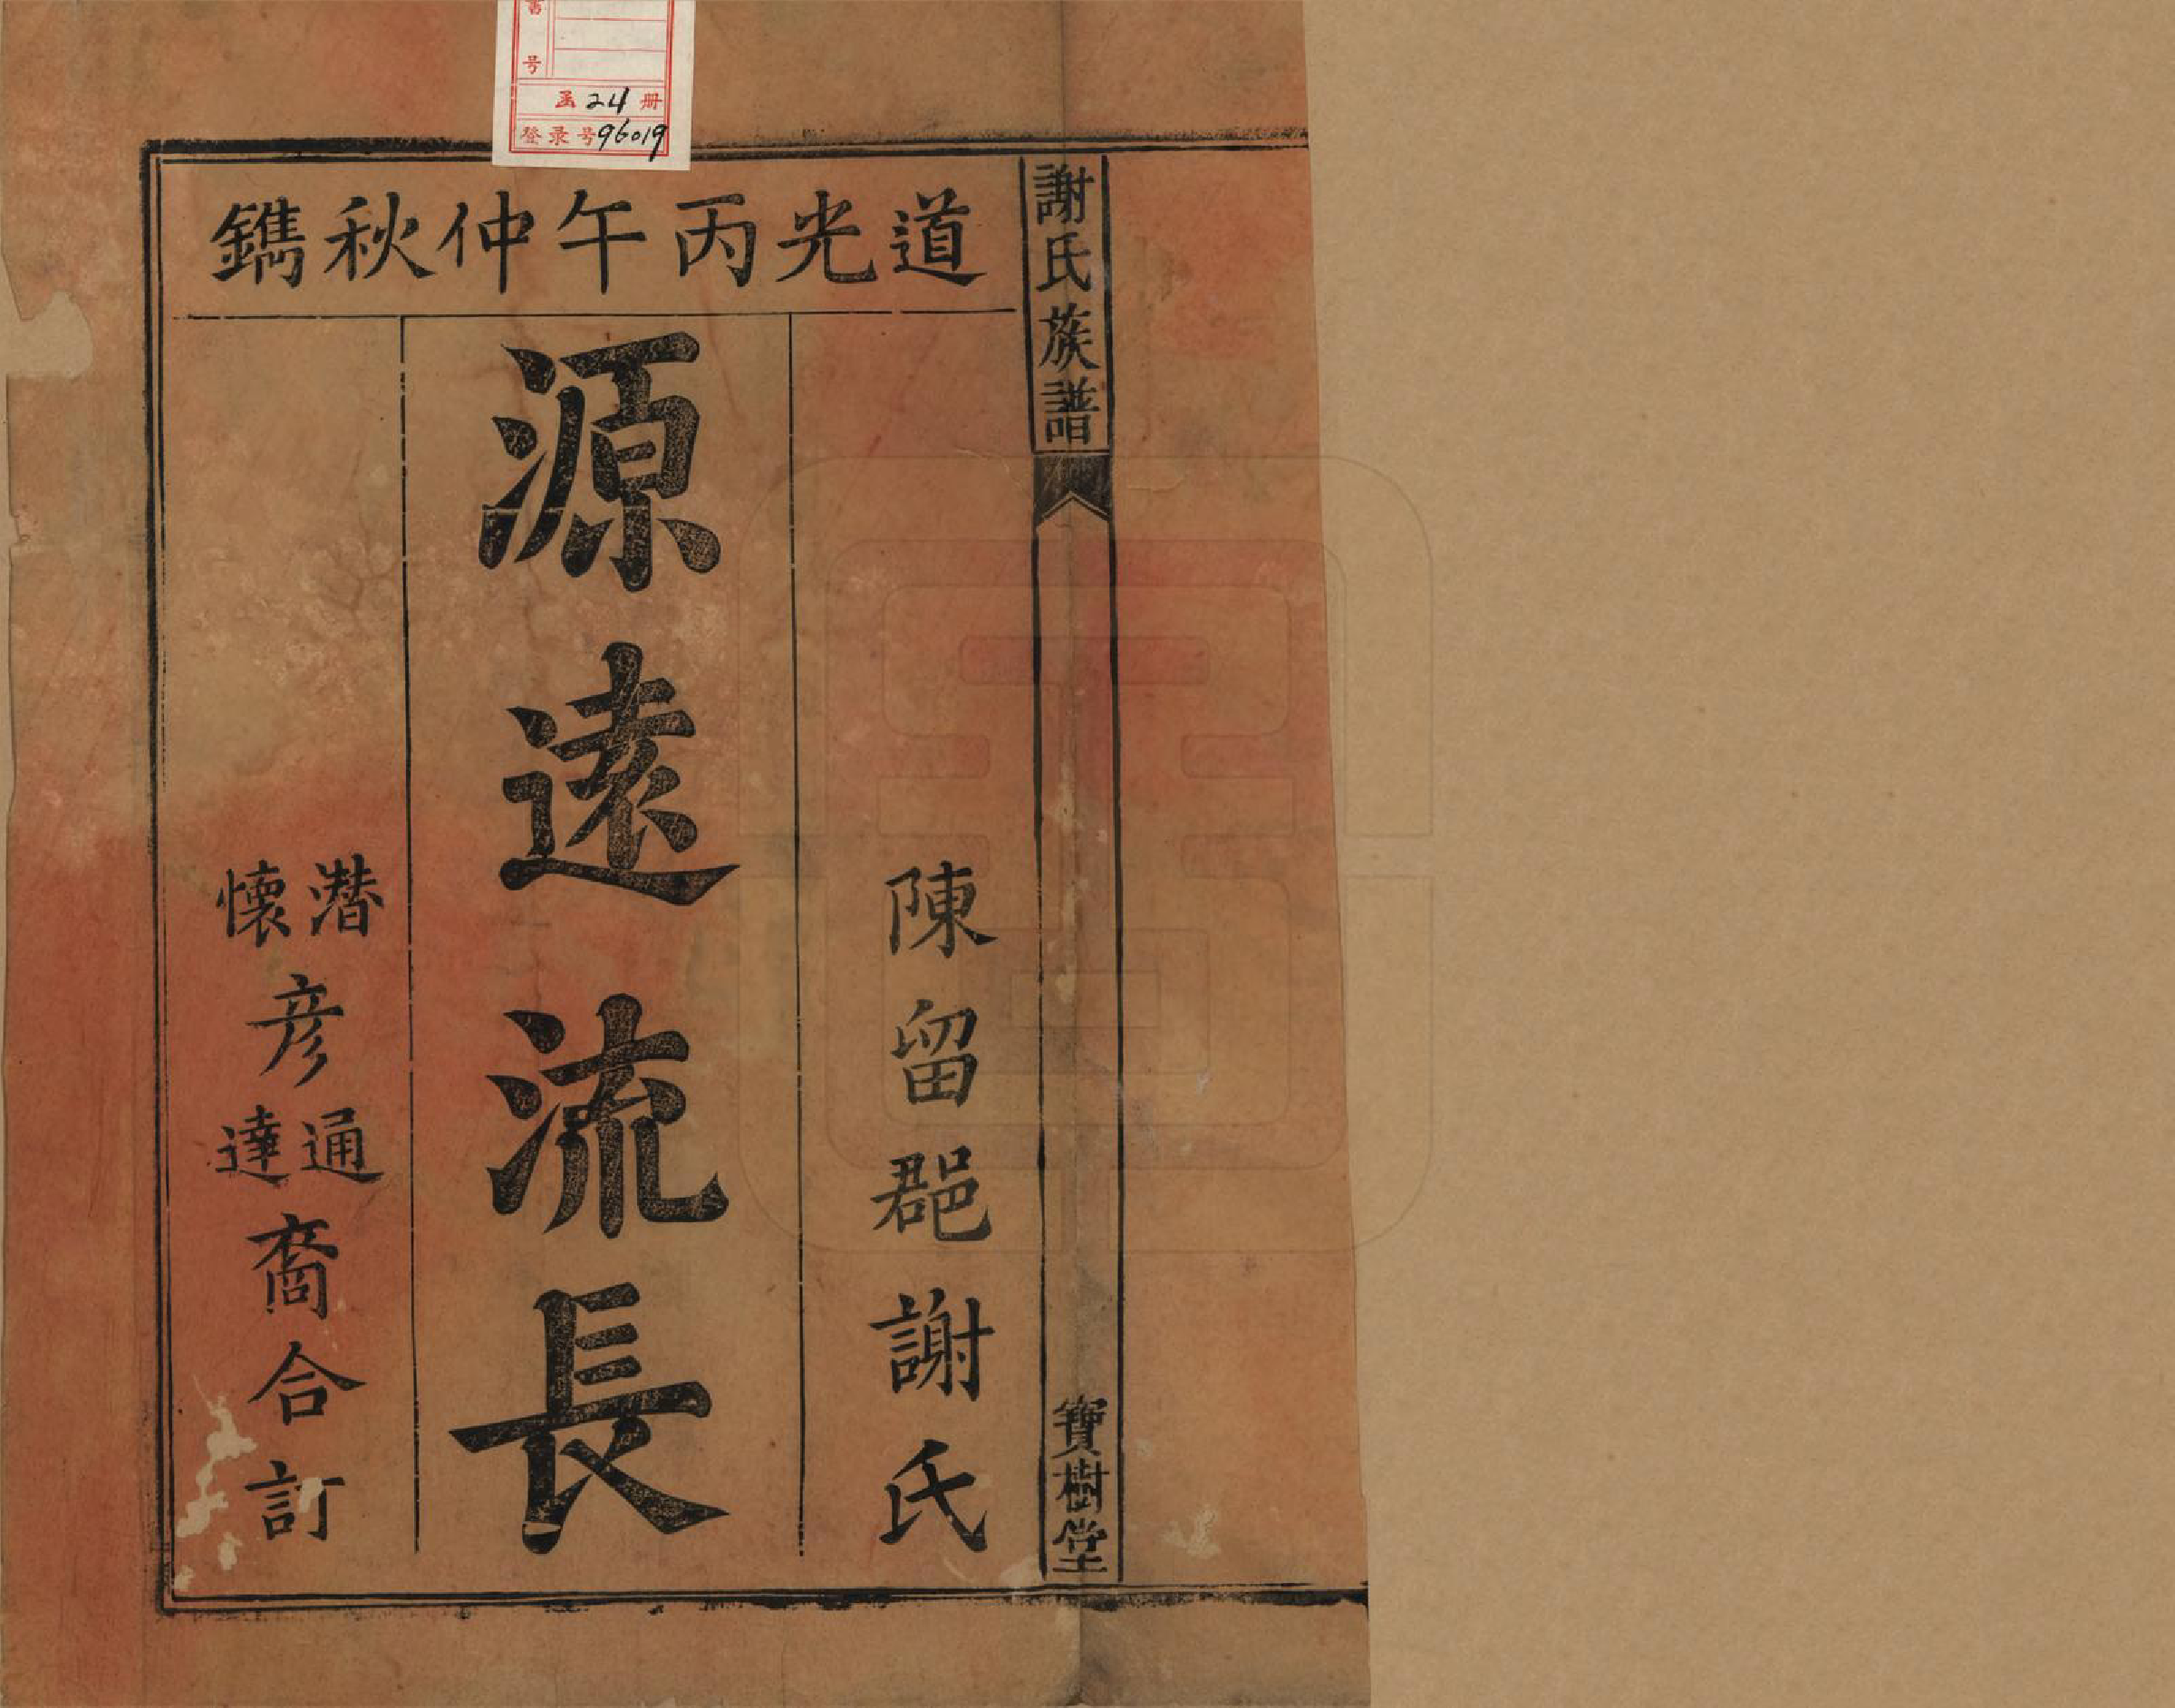 書
号
函 24 册
登录号 96019
謝氏族譜
寶樹堂
道光丙午仲秋鐫
陳留郡謝氏
源遠流長
潛懷彥通達裔合訂